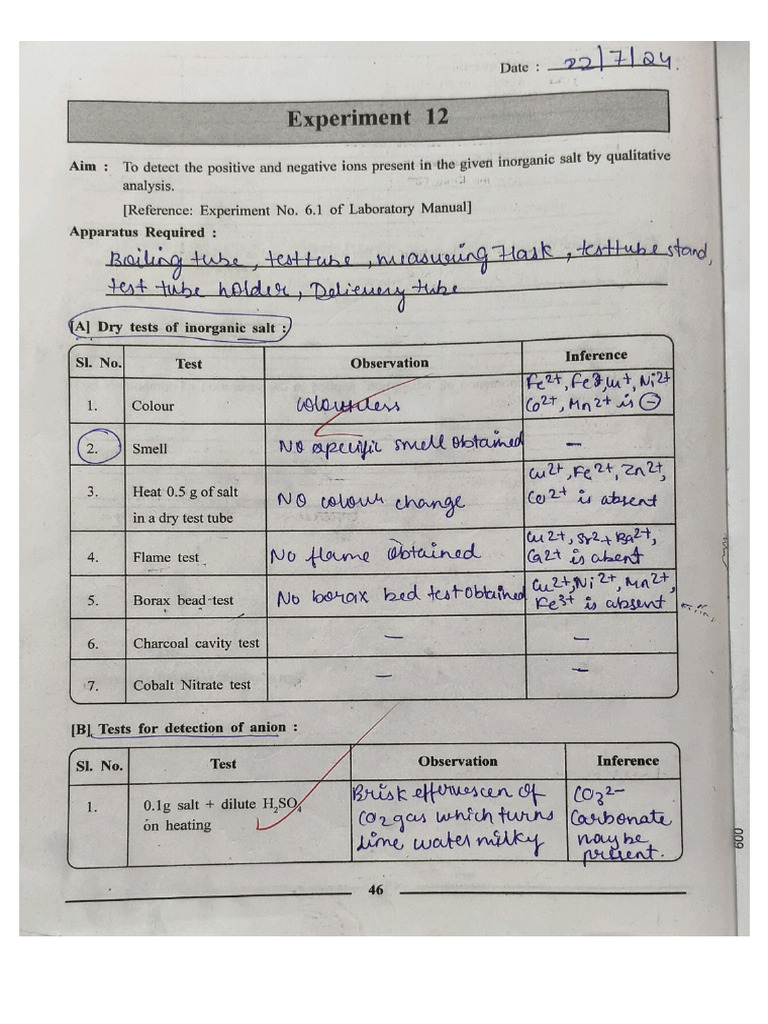 Date : 22/7/24.
Experiment 12
Aim : To detect the positive and negative ions present in the given inorganic salt by qualitative
analysis.
[Reference: Experiment No. 6.1 of Laboratory Manual]
Apparatus Required :
Boiling tube, testtube, measuring flask, testtube stand,
test tube holder, Delievery tube
[A] Dry tests of inorganic salt :
Sl. No. Test Observation Inference
1. Colour colourless Fe2+, Fe3+, Cu+, Ni2+
Co2+, Mn2+ is ⊖
2. Smell No specific smell obtained –
3. Heat 0.5 g of salt
in a dry test tube No colour change Cu2+, Fe2+, Zn2+,
Co2+ is absent
4. Flame test No flame obtained Cu2+, Sr2+ Ba2+,
Ca2+ is absent
5. Borax bead test No borax bed test obtained Cu2+, Ni2+, Mn2+,
Fe3+ is absent
6. Charcoal cavity test – –
7. Cobalt Nitrate test – –
[B] Tests for detection of anion :
Sl. No. Test Observation Inference
1. 0.1g salt + dilute H2SO4
on heating Brisk effervescen of
CO2 gas which turns
lime water milky CO3 2-
Carbonate
may be
present.
46
009